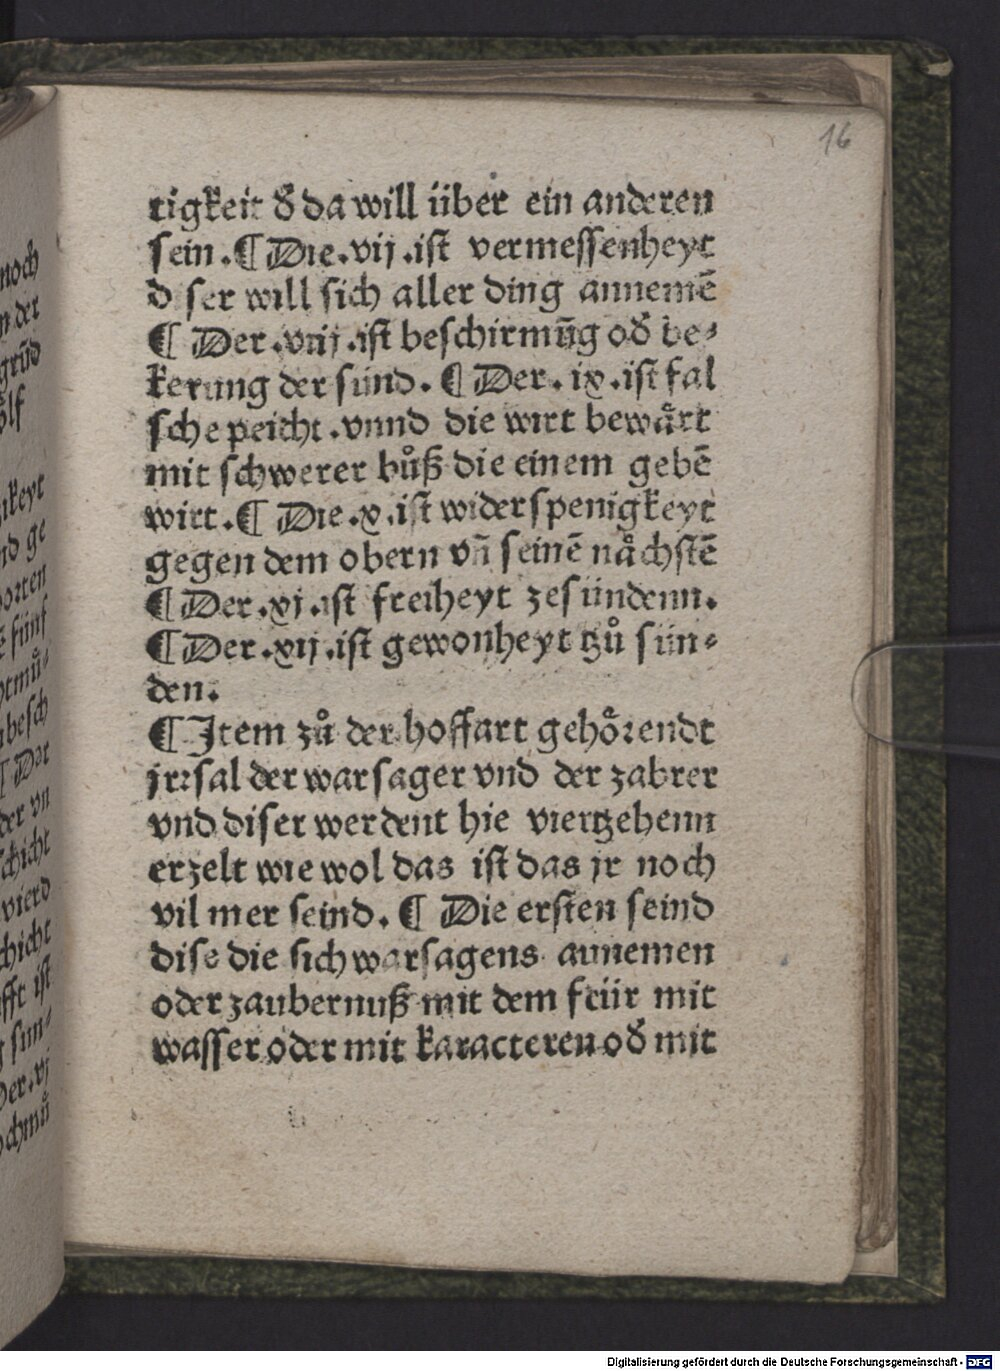 16
tigkeit d̕ da will über ein anderen
sein. ¶ Die .vij. ist vermessenheyt
d ser will sich aller ding annemē
¶ Der .viij. ist beschirmūg od̕ be⸗
kerung der sünd. ¶ Der. ix. ist fal
sche peicht. vnnd die wirt bewaͤrt
mit schwerer bůß die einem gebē
wirt. ¶ Die .x. ist widerspenigkeyt
gegen dem obern vn̄ seinē naͤchstē
¶ Der .xj. ist freiheyt zesündenn.
¶ Der .xij. ist gewonheyt tzů sün⸗
den.
¶ Jtem zů der hoffart gehoͤrendt
jrrsal der warsager vnd der zabrer
vnd diser werdent hie viertzehenn
erzelt wie wol das ist das jr noch
vil mer seind. ¶ Die ersten seind
dise die sich warsagens annemen
oder zaubernuß mit dem feür mit
wasser oder mit karacteren od̕ mit
noch
n der
grūd
ikeyt
nd ge
orten
fünf
besch
¶ Der
der vn
vierd
icht
fft ist
sün⸗
Der .vj
Digitalisierung gefördert durch die Deutsche Forschungsgemeinschaft - DFG